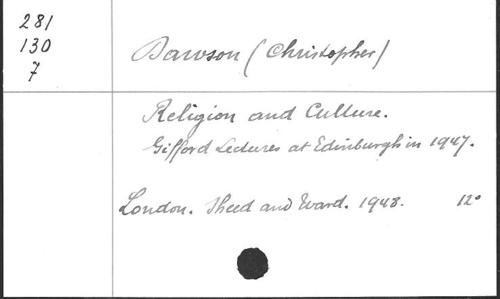 281
130
7
Dawson (Christopher)
Religion and Culture.
Gifford Lectures at Edinburgh in 1947.
London. Sheed and Ward. 1948. 12°